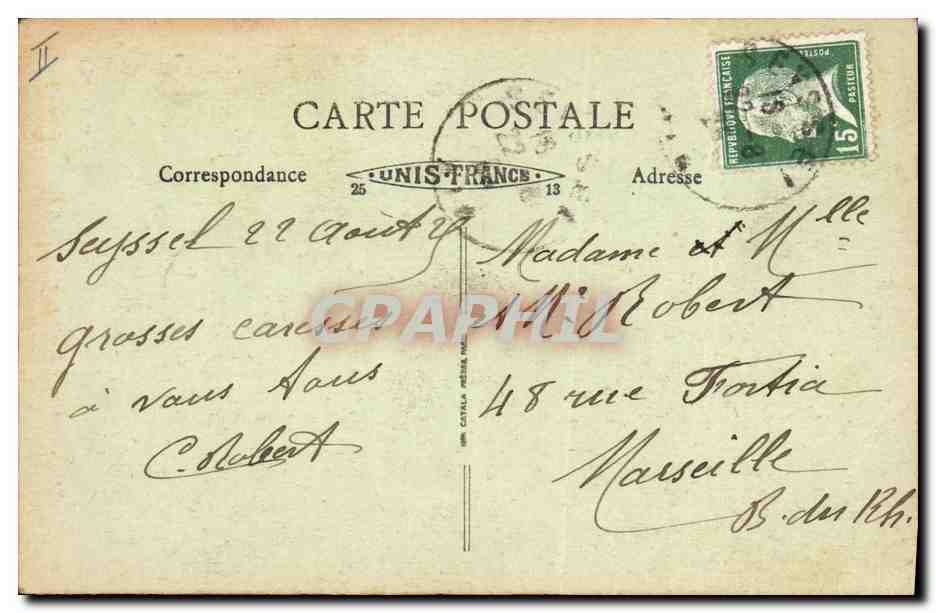 II
CARTE POSTALE
Correspondance
25 UNIS-FRANCE 13
Adresse
REPVBLIQVE FRANÇAISE
POSTES
PASTEUR
15c
Seyssel 22 Août
grosses caresses
à vous tous
C. Robert
IMP. CATALA FRÈRES, PARIS
Madame et Mlle
et Mr Robert
48 rue Fortia
Marseille
B. du Rh.
CPAPHIL